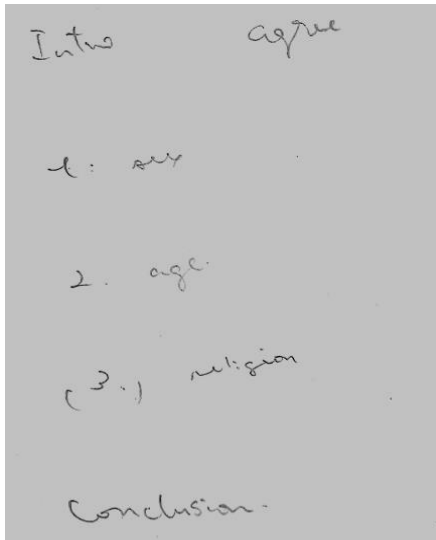 Intro agree
1. sex
2. age.
(3.) religion
Conclusion.